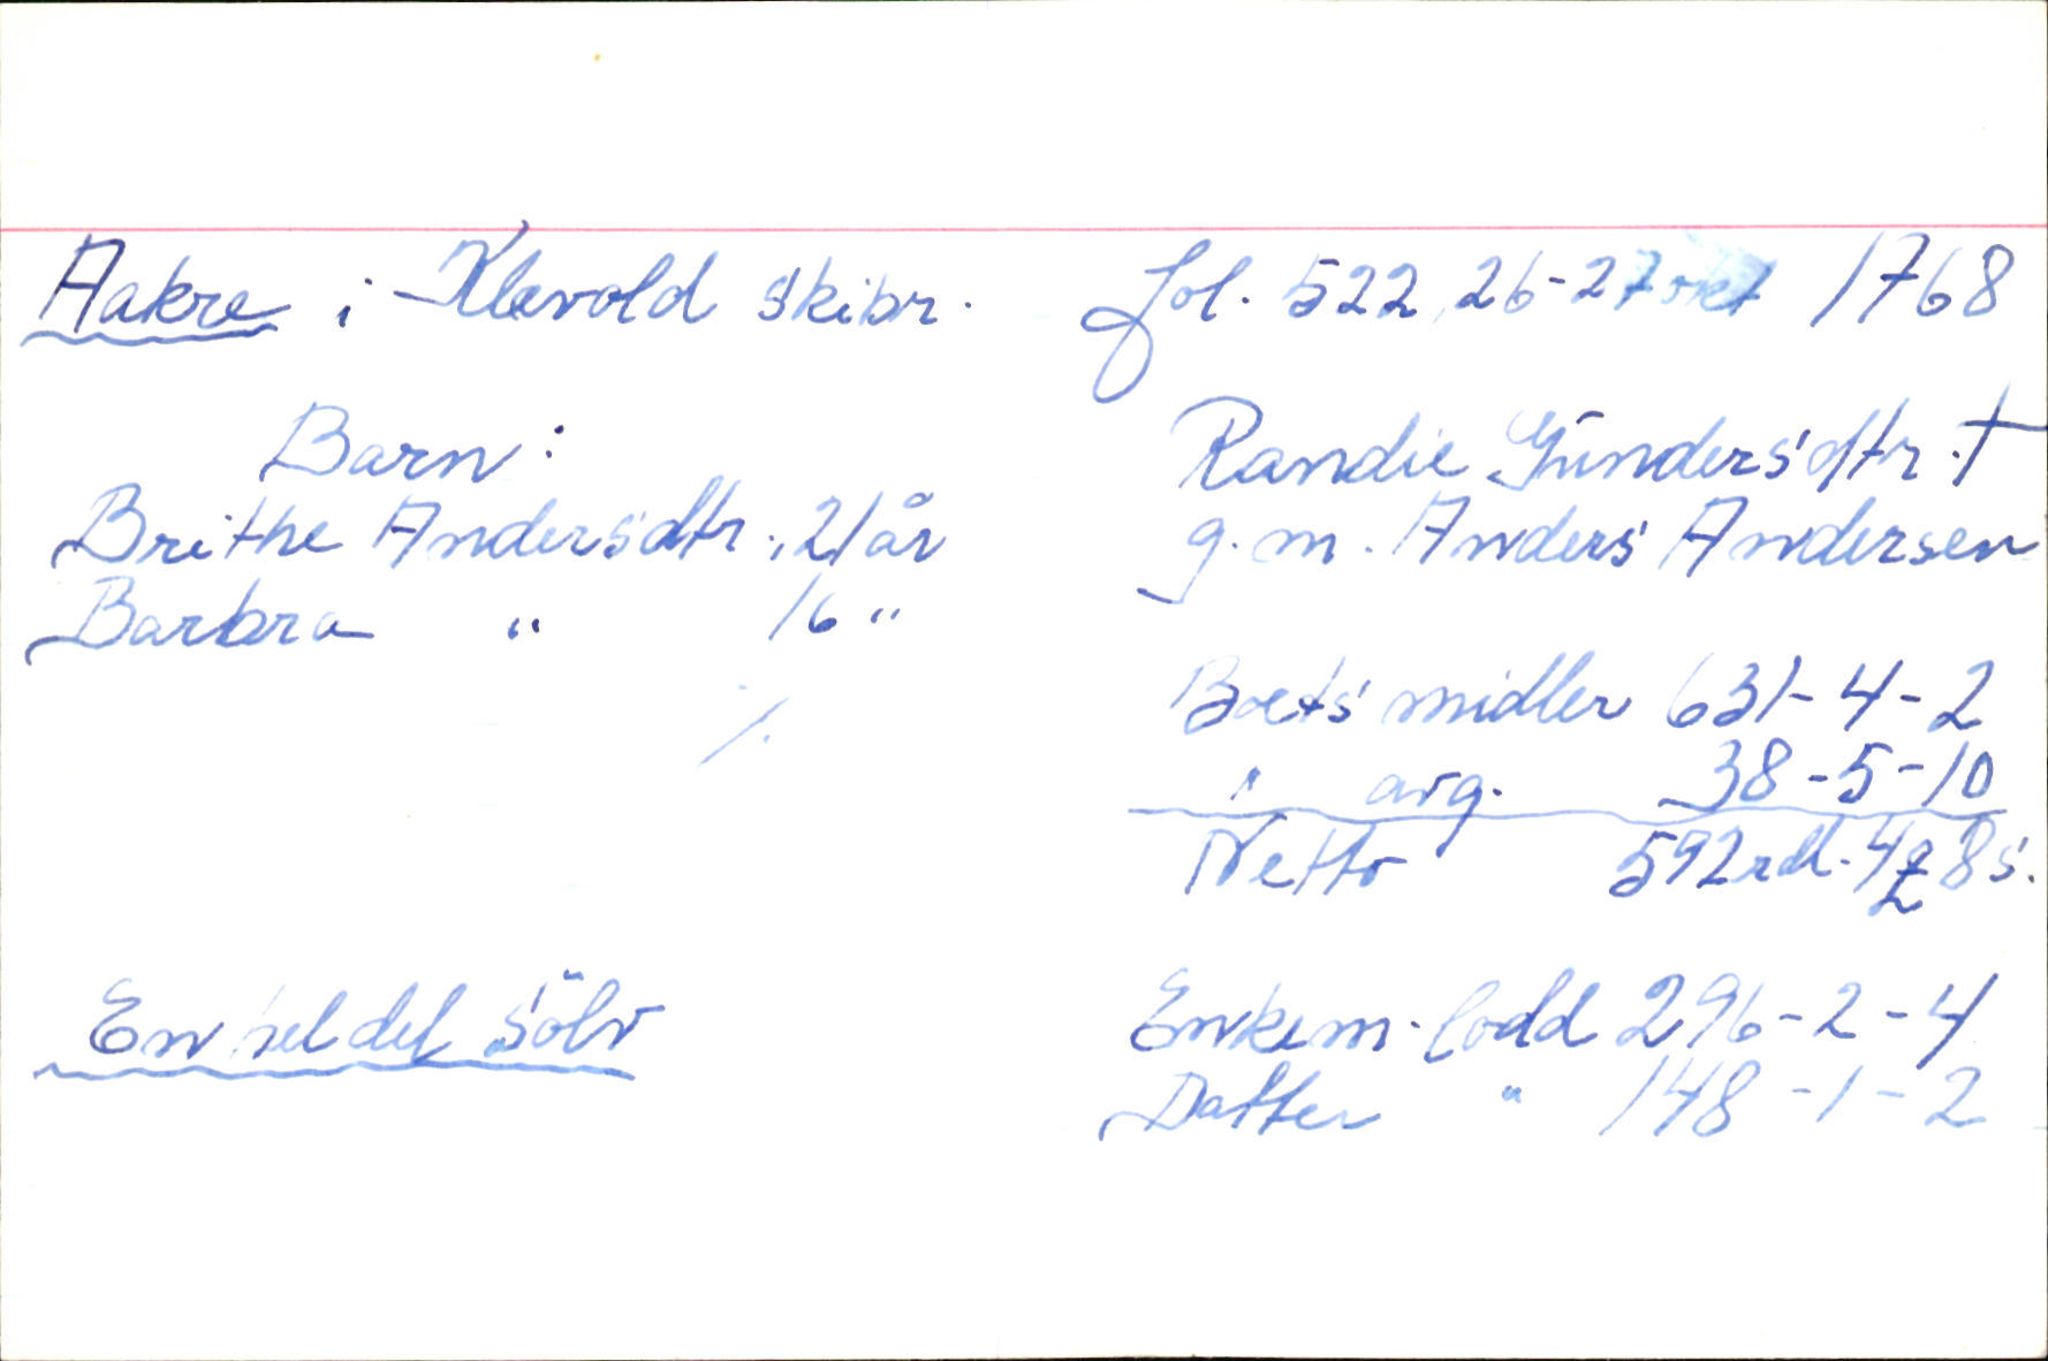 Aakre i Klævold skibr. fol. 522, 26-27 okt 1768
Barn:
Brithe Andersdtr., 21 år
Barbra " 16 "
./.
En hel del sölv
Randie Gundersdtr. †
g. m. Anders Andersen
Boets midler 631-4-2
" arg. 38-5-10
Netto 592 rdl. 4 8 s.
Enkem. lodd 296-2-4
Datter " 148-1-2